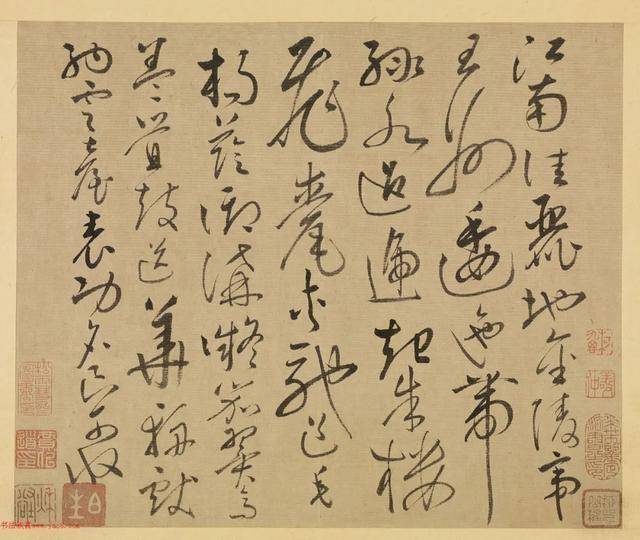 江南佳麗地金陵帝
王州逶迤帶
綠水迢遞起朱樓
飛甍夾馳道垂
楊蔭御溝凝笳翼高
蓋疊鼓送華輈獻
納雲臺表功名良可收